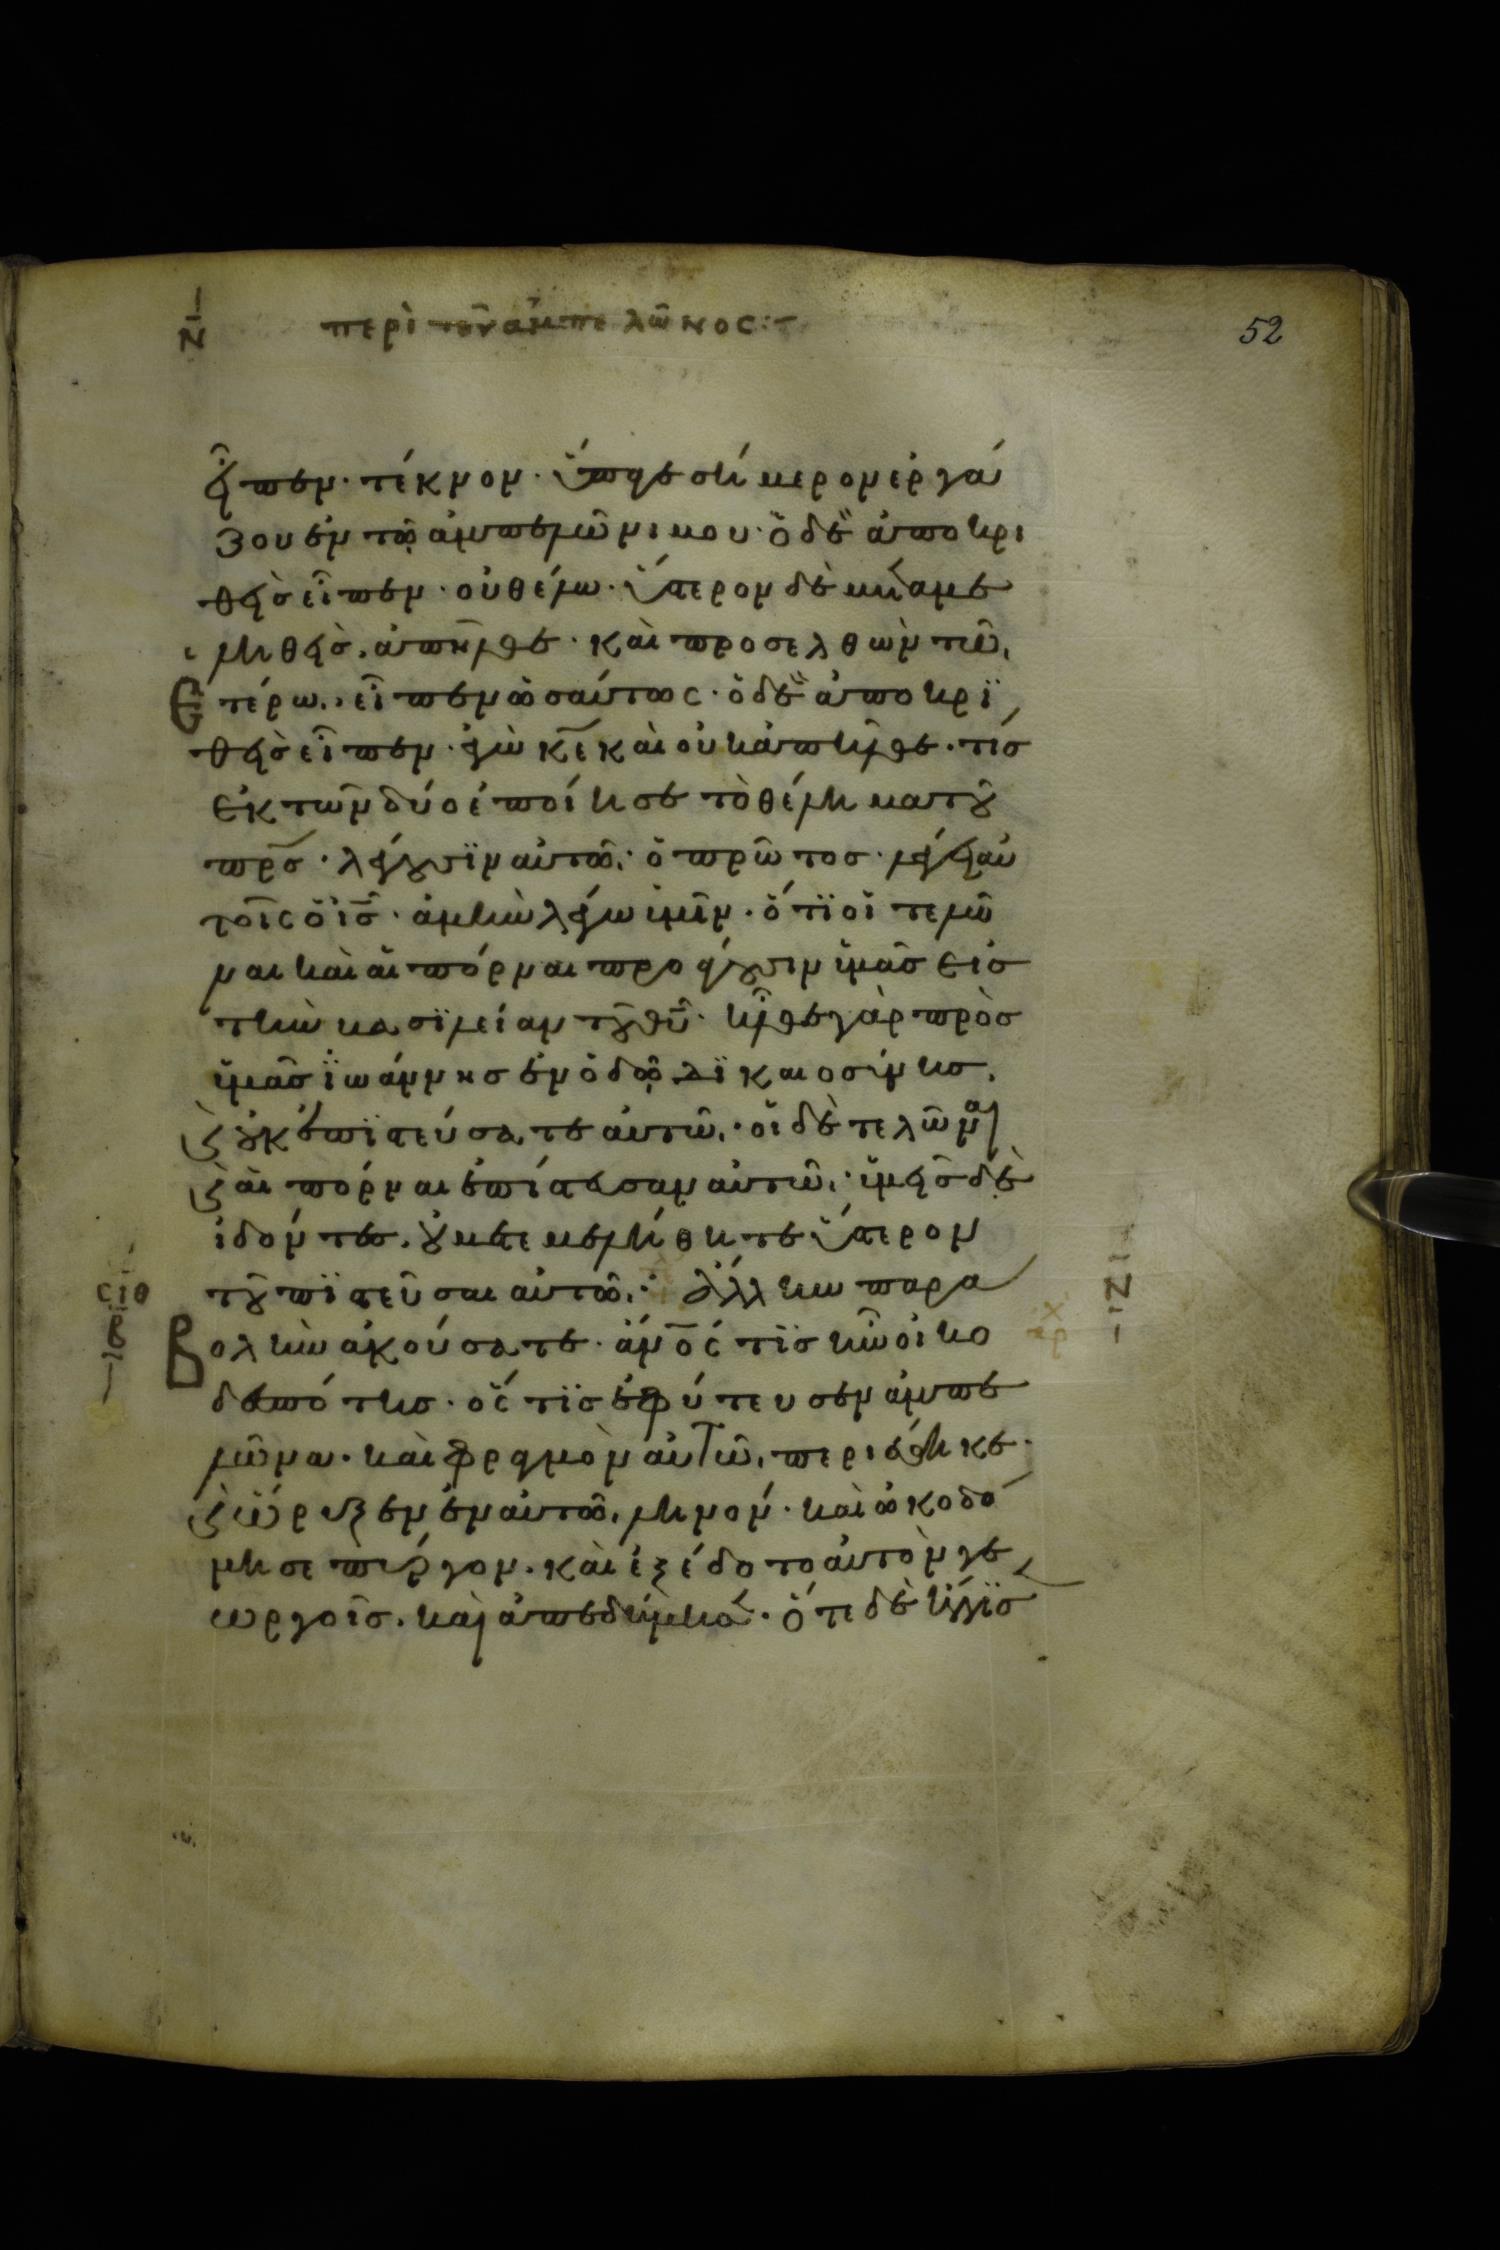 ΝΖ περὶ τοῦ ἀμπελῶνος:
52
εἶπεν· τέκνον· ὕπαγε σήμερον ἐργά
ζου ἐν τῶ ἀμπελῶνι μου· ὁ δὲ ἀποκρι
θεὶς εἶπεν· οὐ θέλω· ὕστερον δὲ μεταμε
ληθεὶς, ἀπῆλθε· καὶ προσελθὼν τῶ
ἑτέρω, εἶπεν ὡσαύτως· ὁ δὲ ἀποκρι
θεὶς εἶπεν· ἐγὼ κε καὶ οὐκ ἀπῆλθε· τίς
ἐκ τῶν δύο ἐποίησε τὸ θέλημα τοῦ
πρς· λέγουσιν αὐτῶ· ὁ πρῶτος· λέγει αὐ
τοῖς ὁ ις· ἀμὴν λέγω ὑμῖν· ὅτι οἱ τελῶ
ναι καὶ αἱ πόρναι προάγουσιν ὑμᾶς εἰς
τὴν βασιλείαν τοῦ θυ· ἦλθε γὰρ πρὸς
ὑμᾶς ἰωάννης ἐν ὁδῶ δικαιοσύνης,
καὶ οὐκ ἐπιστεύσατε αὐτῶ· οἱ δὲ τελῶναι
καὶ αἱ πόρναι ἐπίστευσαν αὐτῶ· ὑμεῖς δὲ
ἰδόντες, οὐ μετεμελήθητε ὕστερον
τοῦ πιστεῦσαι αὐτῶ· ἄλλην παρα
βολὴν ἀκούσατε· ἀνος τις ἦν οἰκο
δεσπότης· ὅστις ἐφύτευσεν ἀμπε
λῶνα· καὶ φραγμὸν αὐτῶ περιέθηκε·
καὶ ὤρυξεν ἐν αὐτῶ ληνόν· καὶ ὠκοδό
μησε πύργον· καὶ ἐξέδοτο αὐτὸν γε
ωργοῖς, καὶ ἀπεδήμησεν· ὅτε δὲ ἤγγισ
ΣΙΘ
Β
ΝΖ